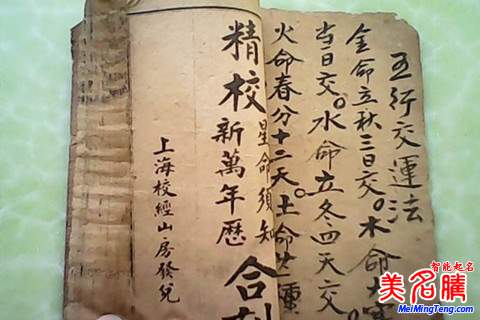 五行交運法
金命立秋三日交。木命大
当日交。水命立冬四天交
火命春分十二天。土命
精校
星命須知
新萬年歷
合
上海校經山房發兌
智能起名
美名騰
MeiMingTeng.com